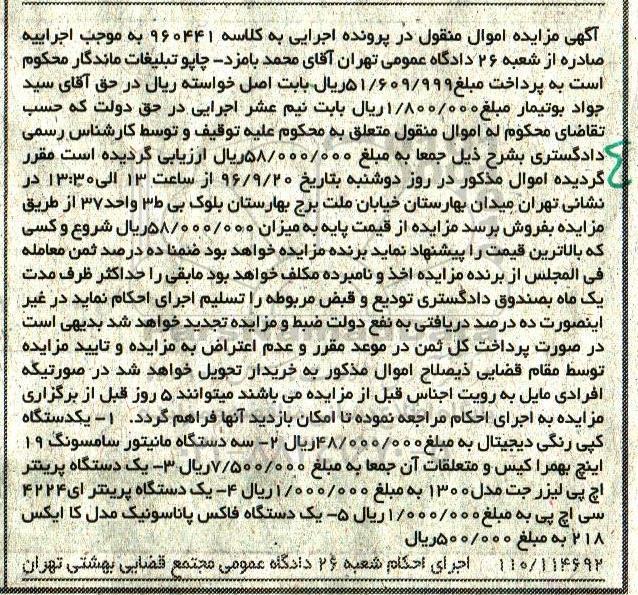 آگهی مزایده اموال منقول در پرونده اجرایی به کلاسه ۹۶۰۴۴۱ به موجب اجراییه
صادره از شعبه ۲۶ دادگاه عمومی تهران آقای محمد بامزد- چاپو تبلیغات ماندگار محکوم
است به پرداخت مبلغ۵۱/۶۰۹/۹۹۹ریال بابت اصل خواسته ریال در حق آقای سید
جواد بوتیمار مبلغ۱/۸۰۰/۰۰۰ریال بابت نیم عشر اجرایی در حق دولت که حسب
تقاضای محکوم له اموال منقول متعلق به محکوم علیه توقیف و توسط کارشناس رسمی
دادگستری بشرح ذیل جمعا به مبلغ ۵۸/۰۰۰/۰۰۰ریال ارزیابی گردیده است مقرر
گردیده اموال مذکور در روز دوشنبه بتاریخ ۹۶/۹/۲۰ از ساعت ۱۳ الی۱۳:۳۰ در
نشانی تهران میدان بهارستان خیابان ملت برج بهارستان بلوک بی ط۳ واحد۳۷ از طریق
مزایده بفروش برسد مزایده از قیمت پایه به میزان ۵۸/۰۰۰/۰۰۰ریال شروع و کسی
که بالاترین قیمت را پیشنهاد نماید برنده مزایده خواهد بود ضمنا ده درصد ثمن معامله
فی المجلس از برنده مزایده اخذ و نامبرده مکلف خواهد بود مابقی را حداکثر ظرف مدت
یک ماه بصندوق دادگستری تودیع و قبض مربوطه را تسلیم اجرای احکام نماید در غیر
اینصورت ده درصد دریافتی به نفع دولت ضبط و مزایده تجدید خواهد شد بدیهی است
در صورت پرداخت کل ثمن در موعد مقرر و عدم اعتراض به مزایده و تایید مزایده
توسط مقام قضایی ذیصلاح اموال مذکور به خریدار تحویل خواهد شد در صورتیکه
افرادی مایل به رویت اجناس قبل از مزایده می باشند میتوانند ۵ روز قبل از برگزاری
مزایده به اجرای احکام مراجعه نموده تا امکان بازدید آنها فراهم گردد. ۱- یکدستگاه
کپی رنگی دیجیتال به مبلغ۴۸/۰۰۰/۰۰۰ریال ۲- سه دستگاه مانیتور سامسونگ ۱۹
اینچ بهمرا کیس و متعلقات آن جمعا به مبلغ ۷/۵۰۰/۰۰۰ریال ۳- یک دستگاه پرینتر
اچ پی لیزر جت مدل۱۳۰۰ به مبلغ ۱/۰۰۰/۰۰۰ریال ۴- یک دستگاه پرینتر ای۴۲۲۴
سی اچ پی به مبلغ۱/۰۰۰/۰۰۰ریال ۵- یک دستگاه فاکس پاناسونیک مدل کا ایکس
۲۱۸ به مبلغ ۵۰۰/۰۰۰ریال
۱۱۰/۱۱۴۶۹۲ اجرای احکام شعبه ۲۶ دادگاه عمومی مجتمع قضایی بهشتی تهران